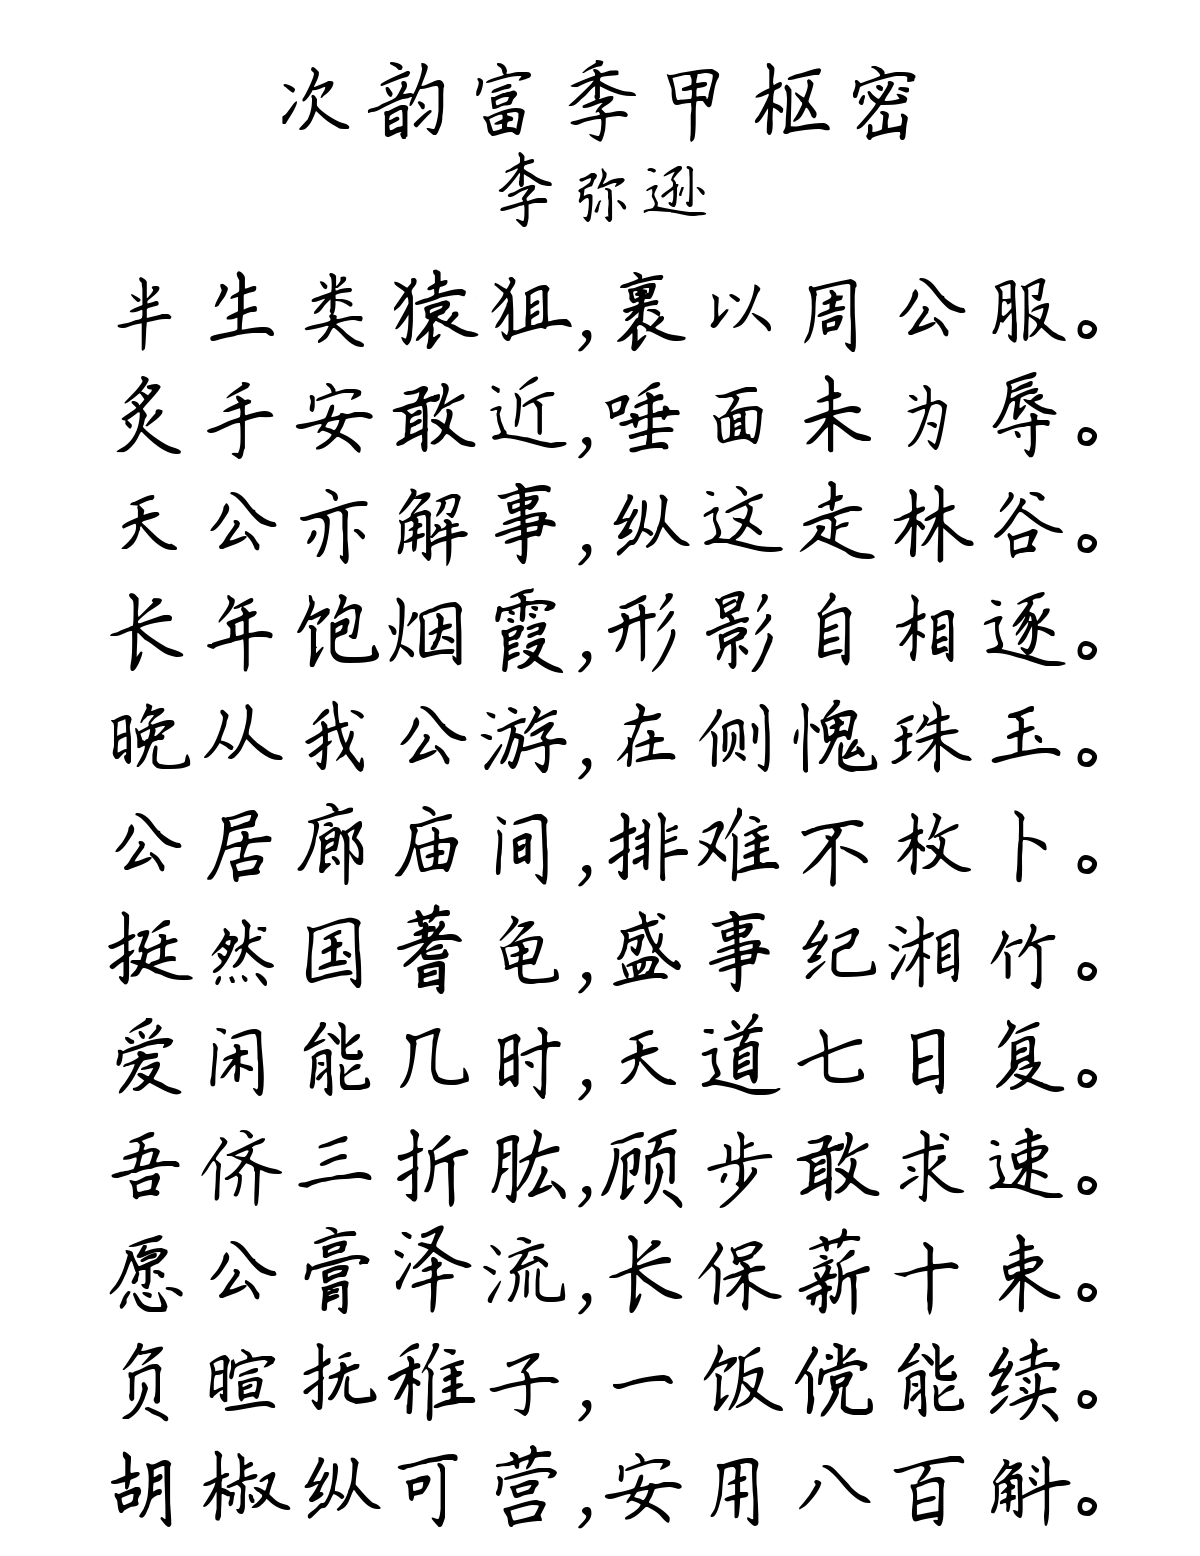 次韵富季甲枢密
李弥逊
半生类猿狙,裹以周公服。
炙手安敢近,唾面未为辱。
天公亦解事,纵这走林谷。
长年饱烟霞,形影自相逐。
晚从我公游,在侧愧珠玉。
公居廊庙间,排难不枚卜。
挺然国蓍龟,盛事纪湘竹。
爱闲能几时,天道七日复。
吾侪三折肱,顾步敢求速。
愿公膏泽流,长保薪十束。
负暄抚稚子,一饭傥能续。
胡椒纵可营,安用八百斛。